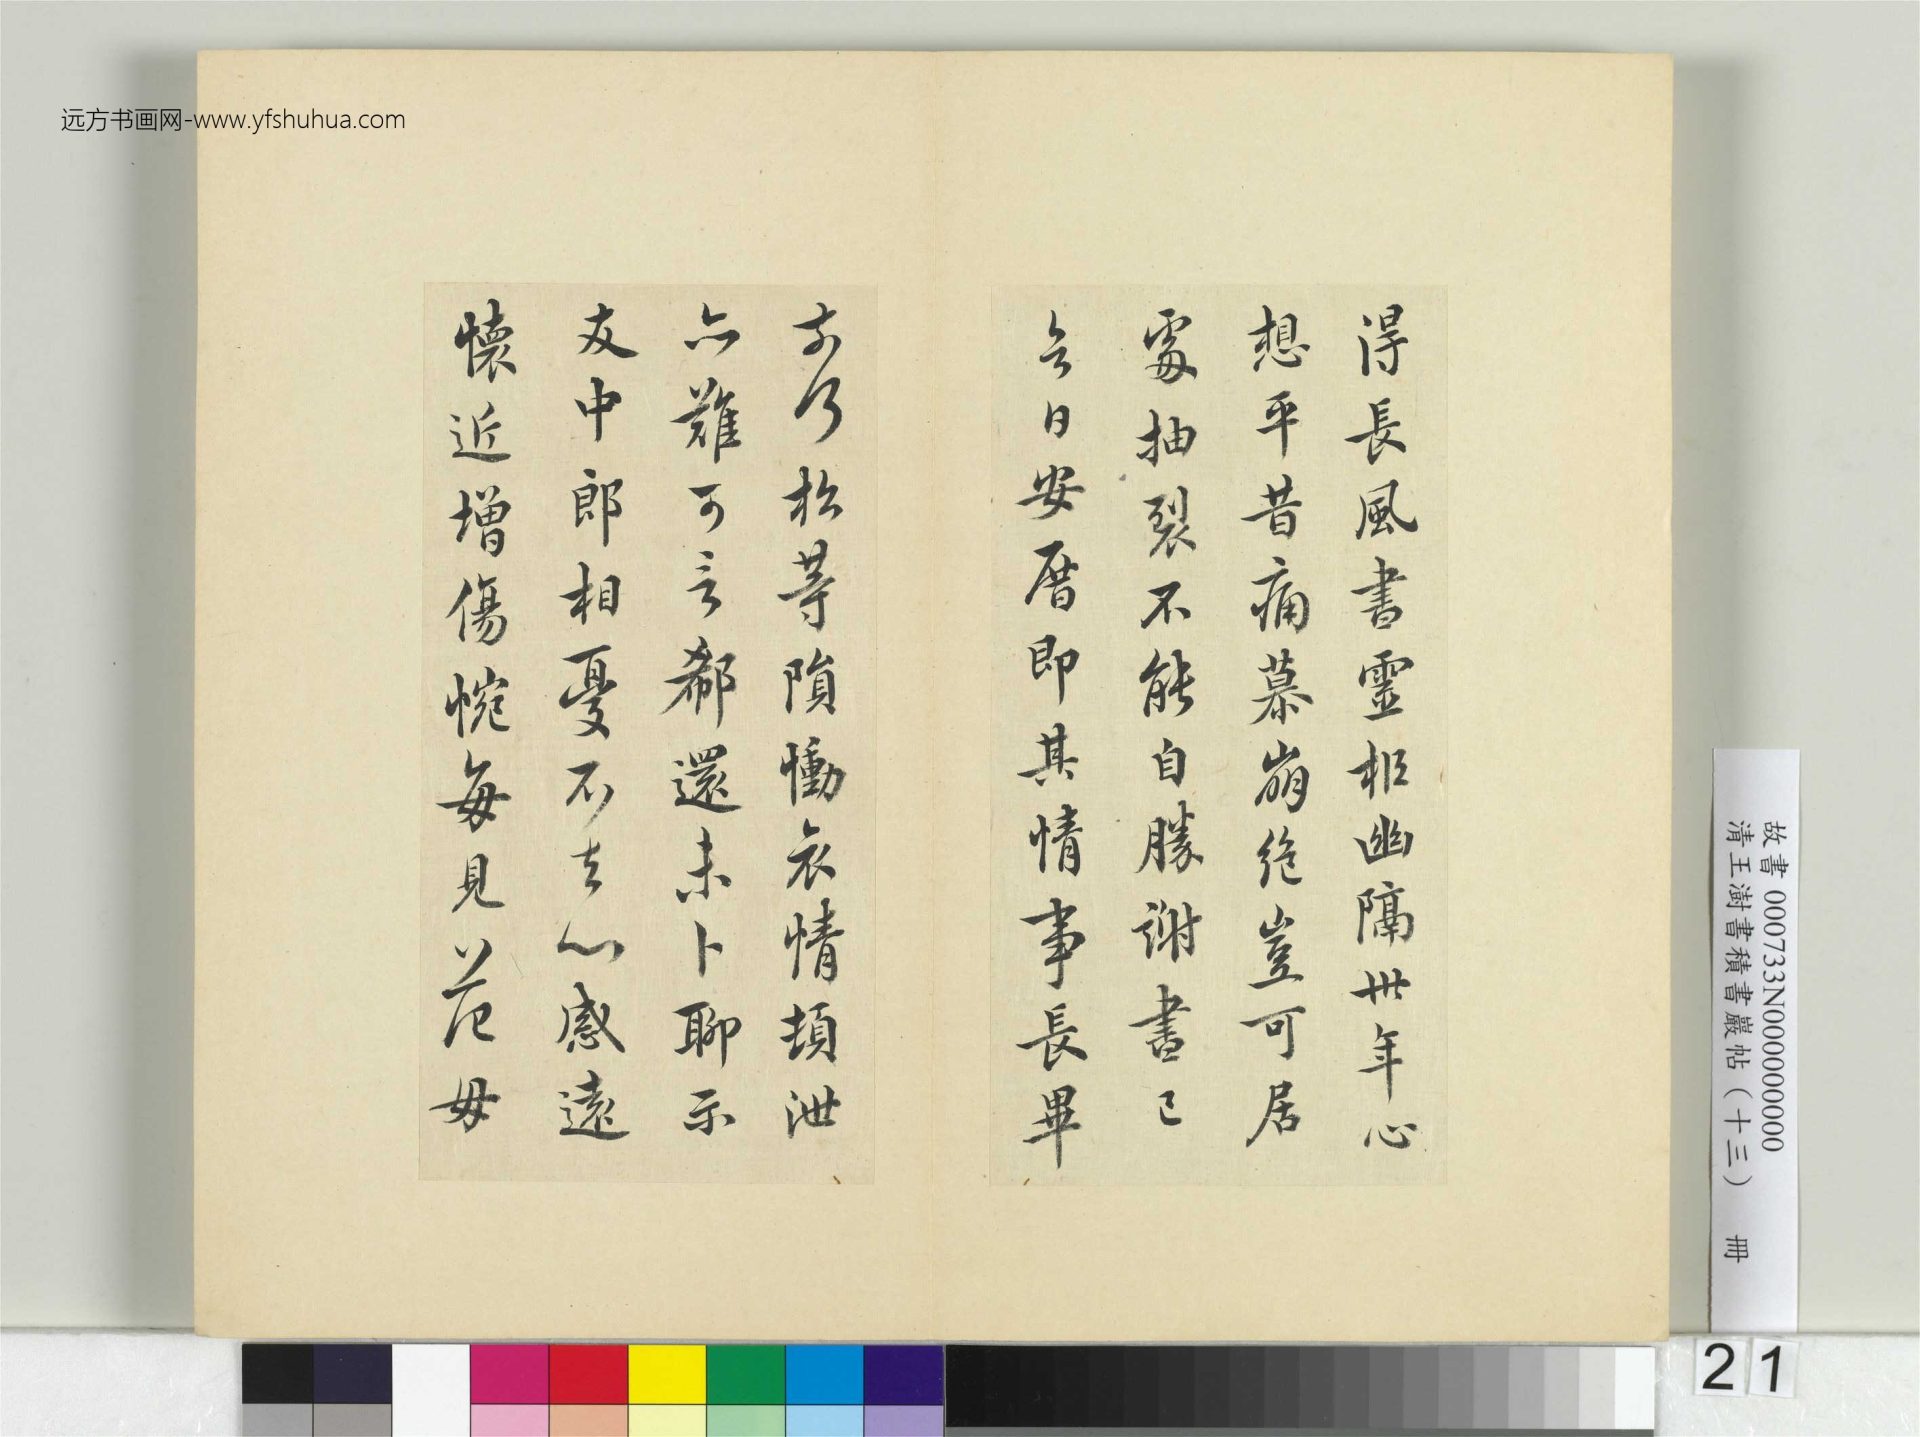 远方书画网-www.yfshuhua.com
得長風書靈柩幽隔卅年心
想平昔痛慕崩絶豈可居
處抽裂不能自勝謝書已
今日安厝即其情事長畢
松等隕慟哀情頓泄
亦難可言郗還未卜聊示
友中郎相憂不去心感遠
懷近增傷惋每見范母
故書 000733N000000000
清王澍書積書巖帖（十三） 冊
21